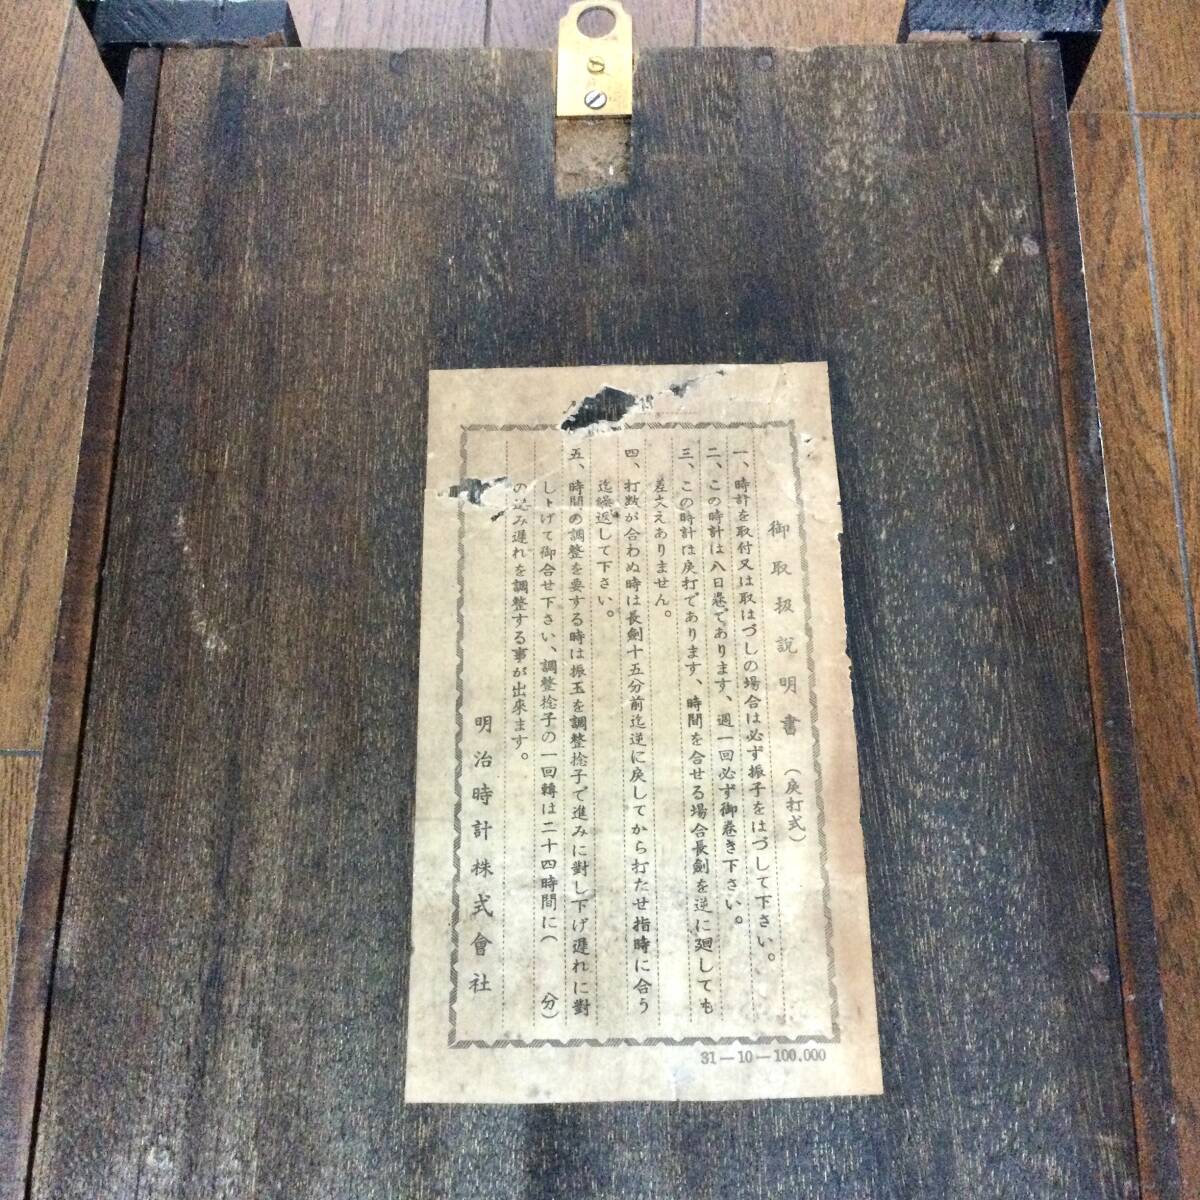 御取扱説明書 （戻打式）
一、時計を取付又は取はづしの場合は必ず振子をはづして下さい。
二、この時計は八日巻であります、週一回必ず御巻き下さい。
三、この時計は戻打であります、時間を合せる場合長劍を逆に廻しても
差支えありません。
四、打数が合わぬ時は長劍十五分前迄逆に戻してから打たせ指時に合う
迄繰返して下さい。
五、時間の調整を要する時は振玉を調整捻子で進みに對し下げ遅れに對
し上げて御合せ下さい、調整捻子の一回轉は二十四時間に（　　分）
の込み遅れを調整する事が出來ます。
明治時計株式會社
31—10—100.000